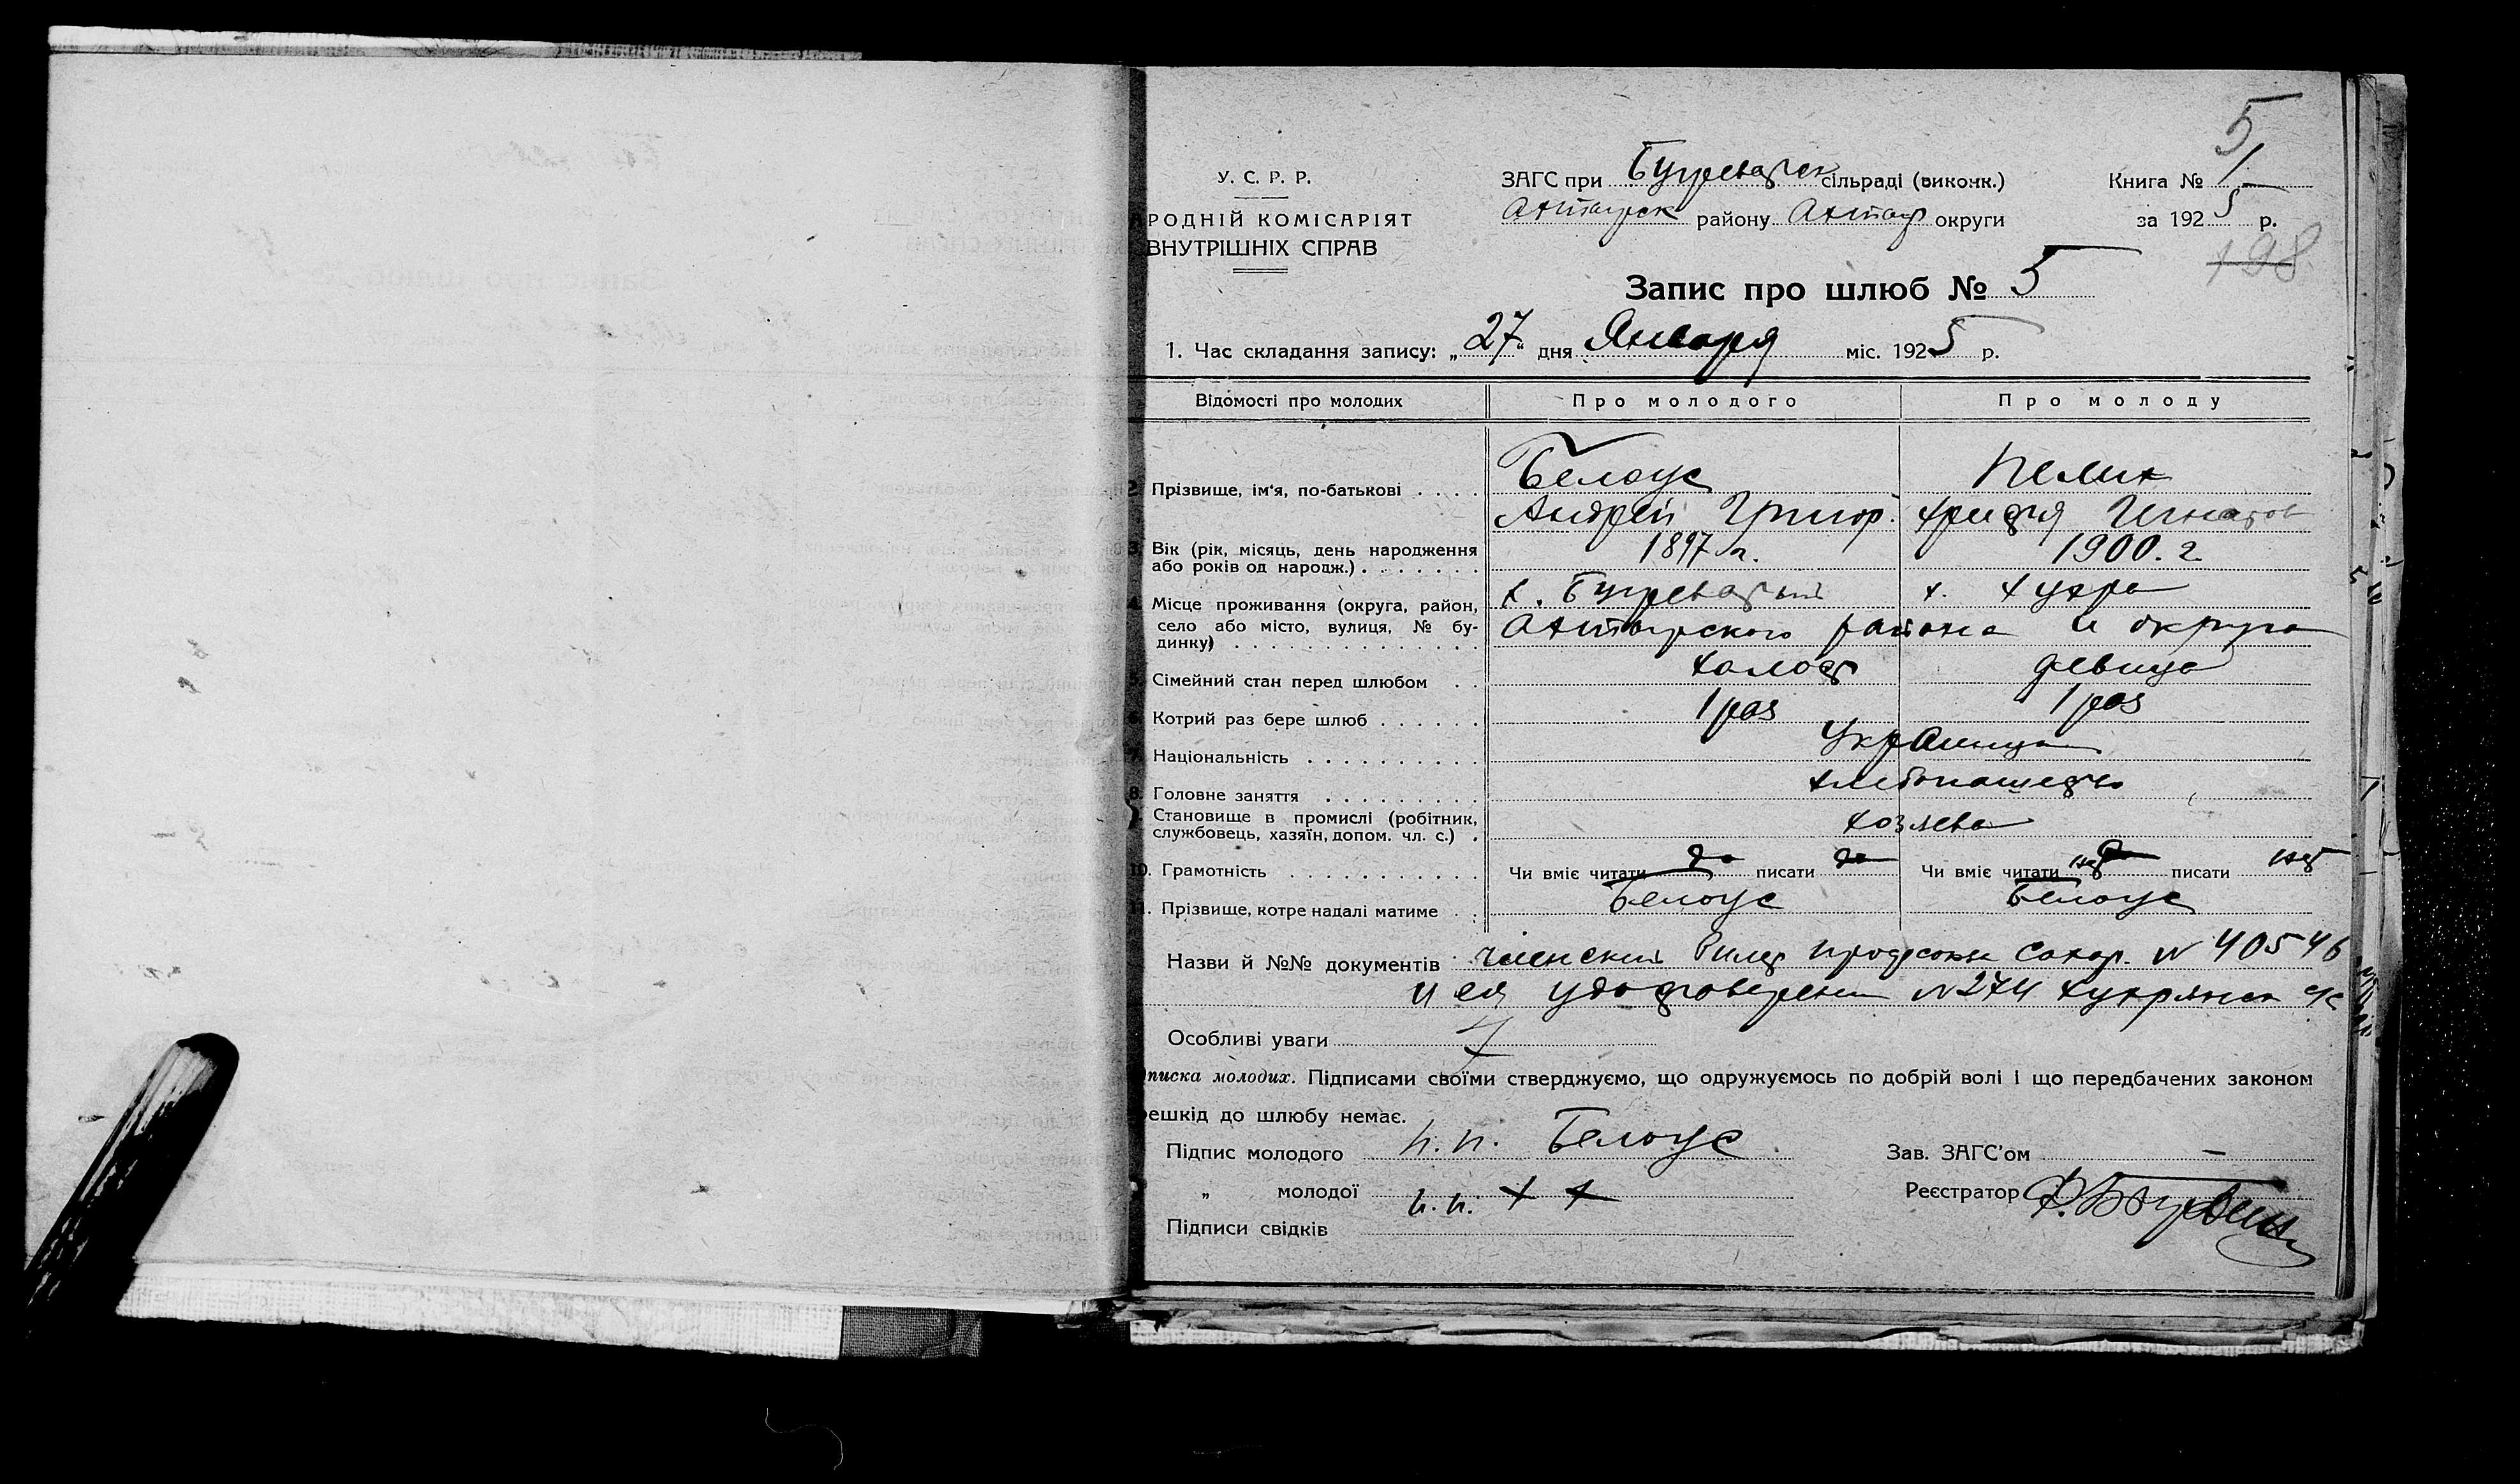 5
У. С. Р. Р.
ЗАГС при Бугреватск сільраді (виконк.)
Книга № 1
РОДНІЙ КОМІСАРІЯТ
Ахтырск району Ахтыр округи
за 1925 р.
ВНУТРІШНІХ СПРАВ
198
Запис про шлюб № 5
1. Час складання запису: „27“ дня Января міс. 1925 р.
Відомості про молодих
Про молодого
Про молоду
2. Прізвище, ім'я, по-батькові
Белоус
Андрей Григор.
Хрисия Игнатов
3. Вік (рік, місяць, день народження
або років од народж.)
1897 г.
1900. г
4. Місце проживання (округа, район,
село або місто, вулиця, № бу-
динку)
х. Бугреватый
х. Хухра
Ахтырского района и округа
5. Сімейний стан перед шлюбом
холост
девица
6. Котрий раз бере шлюб
1 раз
1 раз
7. Національність
Украинцы
8. Головне заняття
хлебопашество
9. Становище в промислі (робітник,
службовець, хазяїн, допом. чл. с.)
хозяева
10. Грамотність
Чи вміє читати да писати да
Чи вміє читати нет писати нет
11. Прізвище, котре надалі матиме
Белоус
Белоус
Назви й №№ документів членский билет Сахар. № 40546
и ея удостоверение № 274 Хухрянск с/с
Особливі уваги
писка молодих. Підписами своїми стверджуємо, що одружуємось по добрій волі і що передбачених законом
решкід до шлюбу немає.
Підпис молодого п.п. Белоус
Зав. ЗАГС'ом —
„ молодої п.п. + +
Реєстратор
Підписи свідків